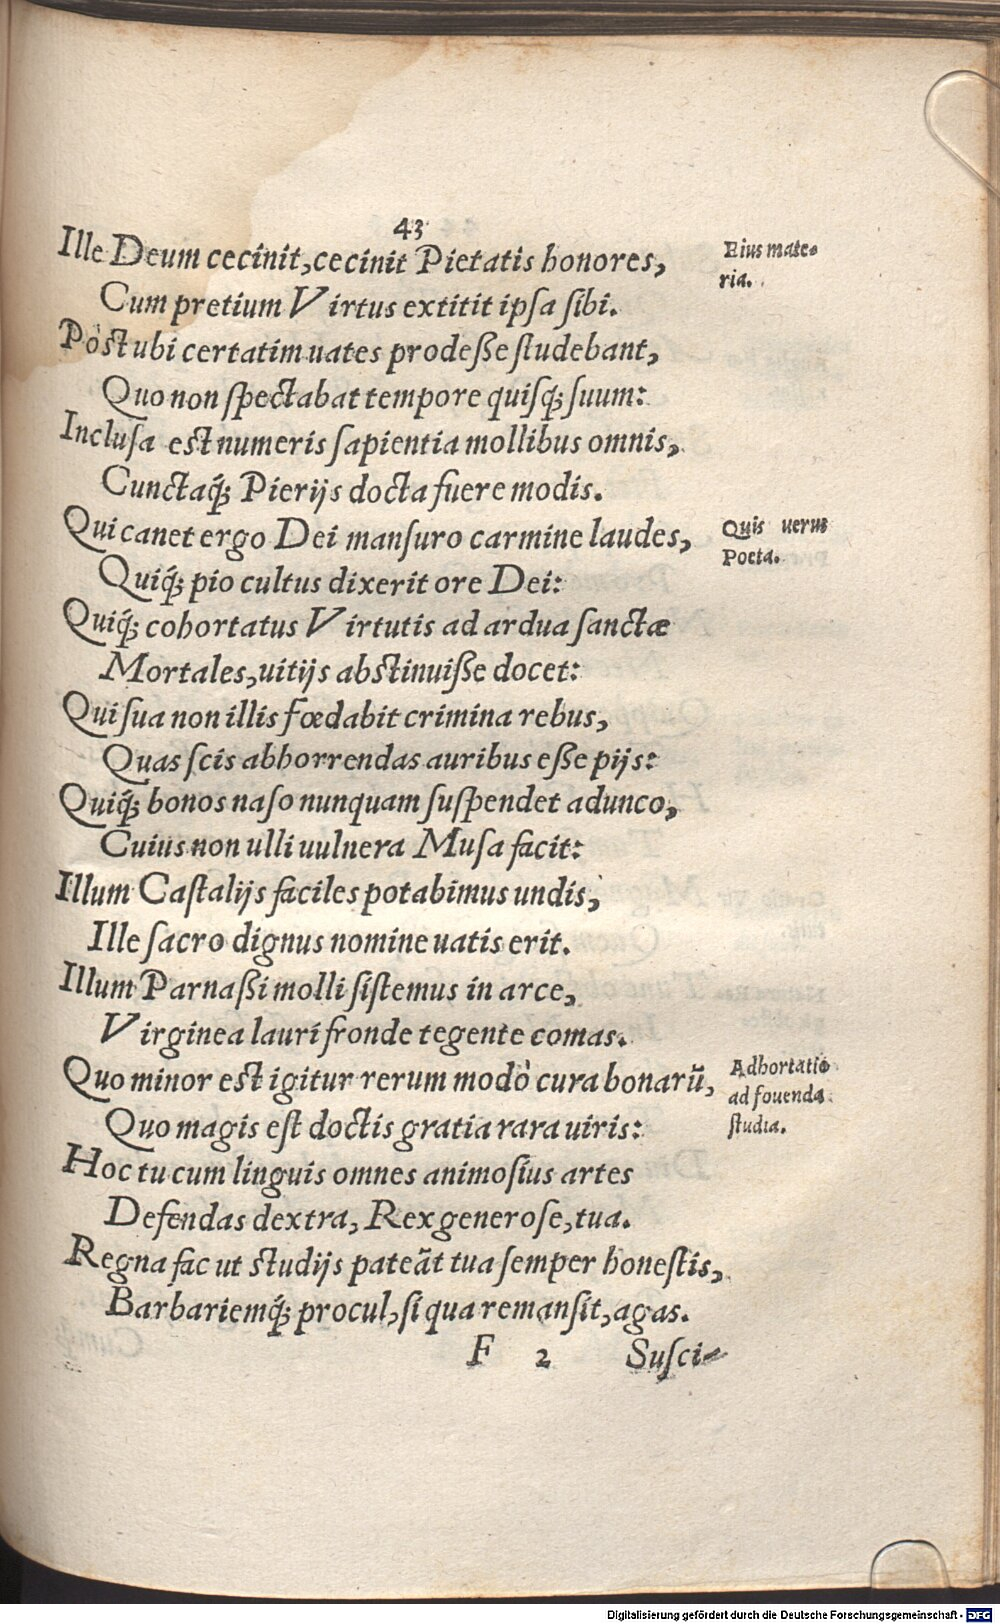 43
Ille Deum cecinit, cecinit Pietatis honores,
Eius mate-
ria.
Cum pretium Virtus extitit ipſa ſibi.
Pòst ubi certatim uates prodeſſe ſtudebant,
Quo non ſpectabat tempore quiſq; ſuum:
Incluſa est numeris ſapientia mollibus omnis,
Cunctaq́; Pierijs docta fuere modis.
Qui canet ergo Dei manſuro carmine laudes,
Quis uerus
Poeta.
Quiq́; pio cultus dixerit ore Dei:
Quiq́; cohortatus Virtutis ad ardua ſanctæ
Mortales, uitijs abstinuiſſe docet:
Qui ſua non illis fœdabit crimina rebus,
Quas ſcis abhorrendas auribus eſſe pijs:
Quiq́; bonos naſo nunquam ſuſpendet adunco,
Cuius non ulli uulnera Muſa facit:
Illum Caſtalijs faciles potabimus undis,
Ille ſacro dignus nomine uatis erit.
Illum Parnaſſi molli ſiſtemus in arce,
Virginea lauri fronde tegente comas.
Quo minor est igitur rerum modò cura bonarũ,
Adhortatio
ad fouenda
ſtudia.
Quo magis eſt doctis gratia rara uiris:
Hoc tu cum linguis omnes animoſius artes
Defendas dextra, Rex generoſe, tua.
Regna fac ut studijs pateãt tua ſemper honeſtis,
Barbariemq́; procul, ſi qua remanſit, agas.
F 2 Suſci-
Digitalisierung gefördert durch die Deutsche Forschungsgemeinschaft - DFG